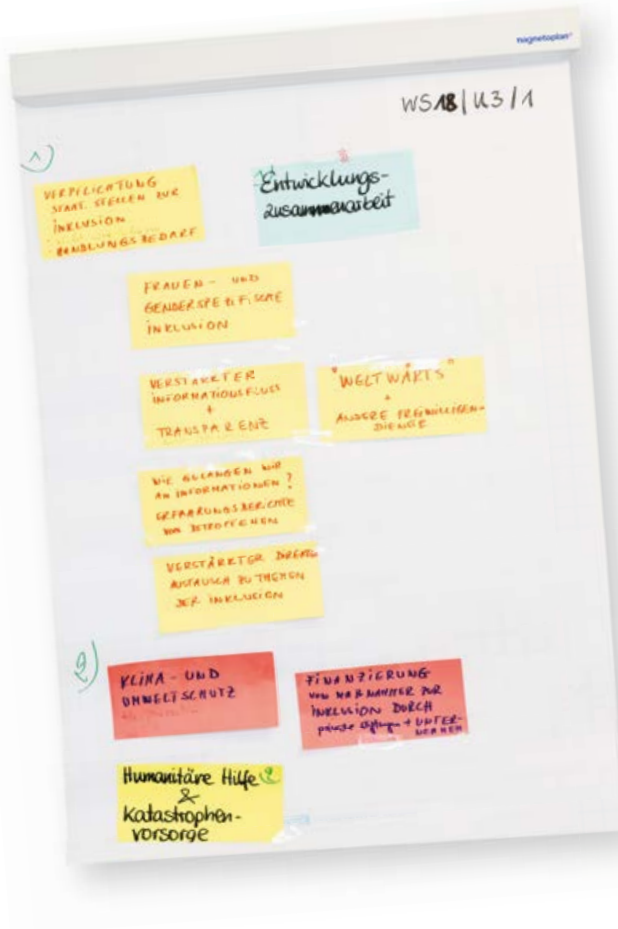 magnetoplan®
WS18/U3/1
1)
VERPFLICHTUNG
STAAT. STELLEN ZUR
INKLUSION
HANDLUNGSBEDARF
Entwicklungs-
zusammenarbeit
FRAUEN- UND
GENDERSPEZIFISCHE
INKLUSION
VERSTÄRKTER
INFORMATIONSFLUSS
+
TRANSPARENZ
"WELTWÄRTS"
+
ANDERE FREIWILLIGEN-
DIENSTE
WIE GELANGEN WIR
AN INFORMATIONEN?
ERFAHRUNGSBERICHTE
VON BETROFFENEN
VERSTÄRKTER DIREKTER
AUSTAUSCH ZU THEMEN
DER INKLUSION
2)
KLIMA- UND
UMWELTSCHUTZ
FINANZIERUNG
VON MAßNAHMEN ZUR
INKLUSION DURCH
private Stiftungen + UNTER-
NEHMEN
Humanitäre Hilfe 2
&
Katastrophen-
vorsorge